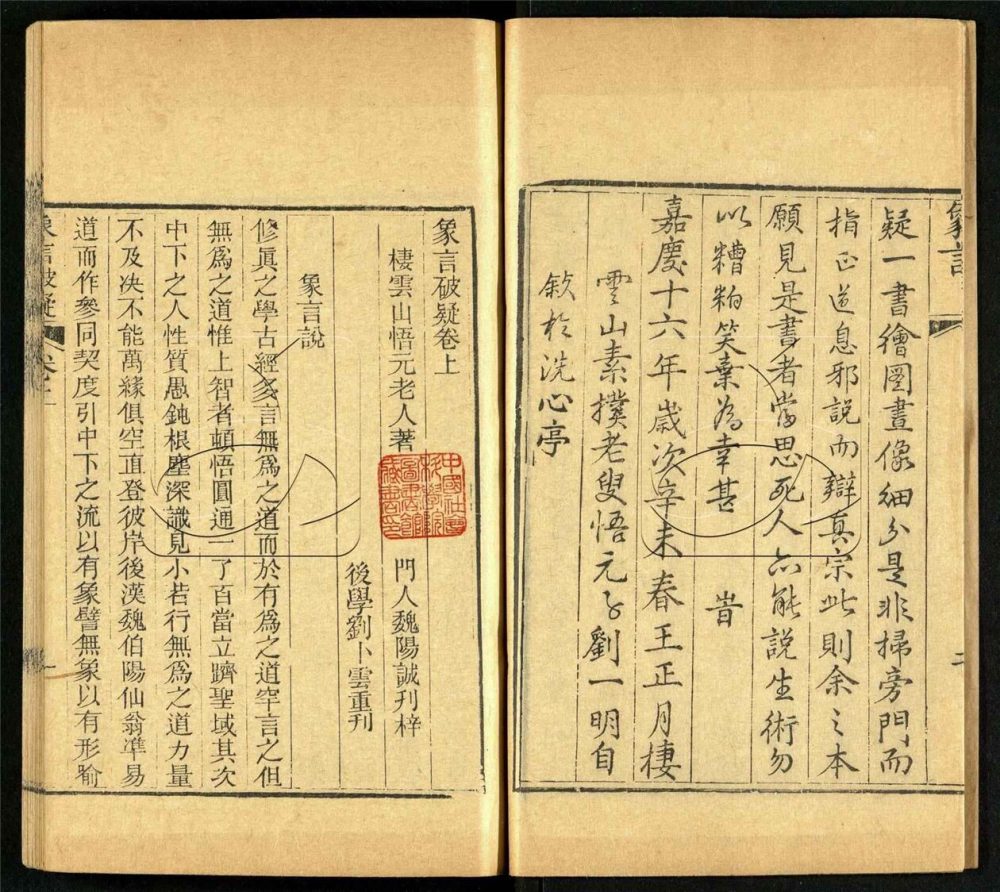 疑一書繪圖畫像細分是非掃旁門而
指正道息邪說而辯真宗此則余之本
願見是書者當思死人亦能說生術勿
以糟粕笑棄為幸甚 旹
嘉慶十六年歲次辛未春王正月棲
雲山素樸老叟悟元子劉一明自
敘於洗心亭
象言破疑卷上
棲雲山悟元老人著 門人魏陽誠刊梓
後學劉卜雲重刊
象言說
修眞之學古經多言無爲之道而於有爲之道罕言之但
無爲之道惟上智者頓悟圓通一了百當立躋聖域其次
中下之人性質愚鈍根塵深識見小若行無爲之道力量
不及決不能萬緣俱空直登彼岸後漢魏伯陽仙翁準易
道而作參同契度引中下之流以有象譬無象以有形喻
象言破疑 卷上
中國社會
科學院
圖書館
藏書印